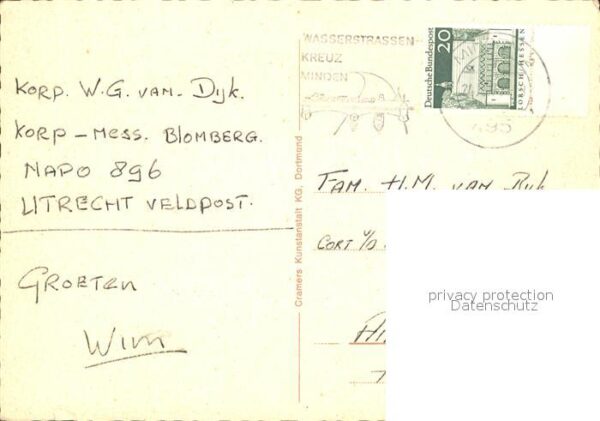 KORP. W.G. VAN DIJK.
KORP-MESS. BLOMBERG.
NAPO 896
UTRECHT VELDPOST.
GROETEN
WIM
Cramers Kunstanstalt KG, Dortmund
WASSERSTRASSEN-
KREUZ
MINDEN
20
Deutsche Bundespost
LORSCH · HESSEN
495
FAM. H.M. VAN
CORT V/D
privacy protection
Datenschutz